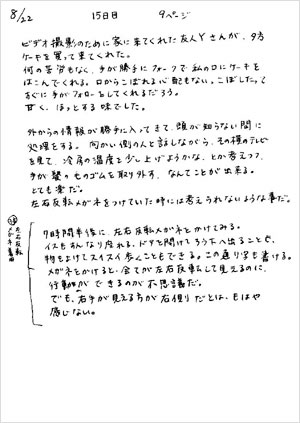 8/22 15日目 9ページ
ビデオ撮影のために家に来てくれた友人Yさんが、夕方
ケーキを買って来てくれた。
何の苦労もなく、手が勝手にフォークで私の口にケーキを
はこんでくれる。口からこぼれる心配もない。こぼしたって
すぐに手がフォローをしてくれるだろう。
甘く、ほっとする味でした。
外からの情報が勝手に入ってきて、頭が知らない間に
処理をする。向かい側の人と話しながら、その横のテレビ
を見て、冷房の温度を少し上げようかな、とか考えつつ、
手が髪の毛のゴムを取り外す、なんてことが出来る。
とても楽だ。
左右反転メガネをつけていた時には考えられないような事だ。
左右反転
メガネ着用
7時間半後に、左右反転メガネをかけてみる。
イスもすんなり座れる、ドアを開けてろう下へ出ることも、
物をよけてスイスイ歩くこともできる。この通り字も書ける。
メガネをかけると、全てが左右反転して見えるのに、
行動が できるのが不思議だ。
でも、右手が見える方が右側りだとは、もはや
感じない。